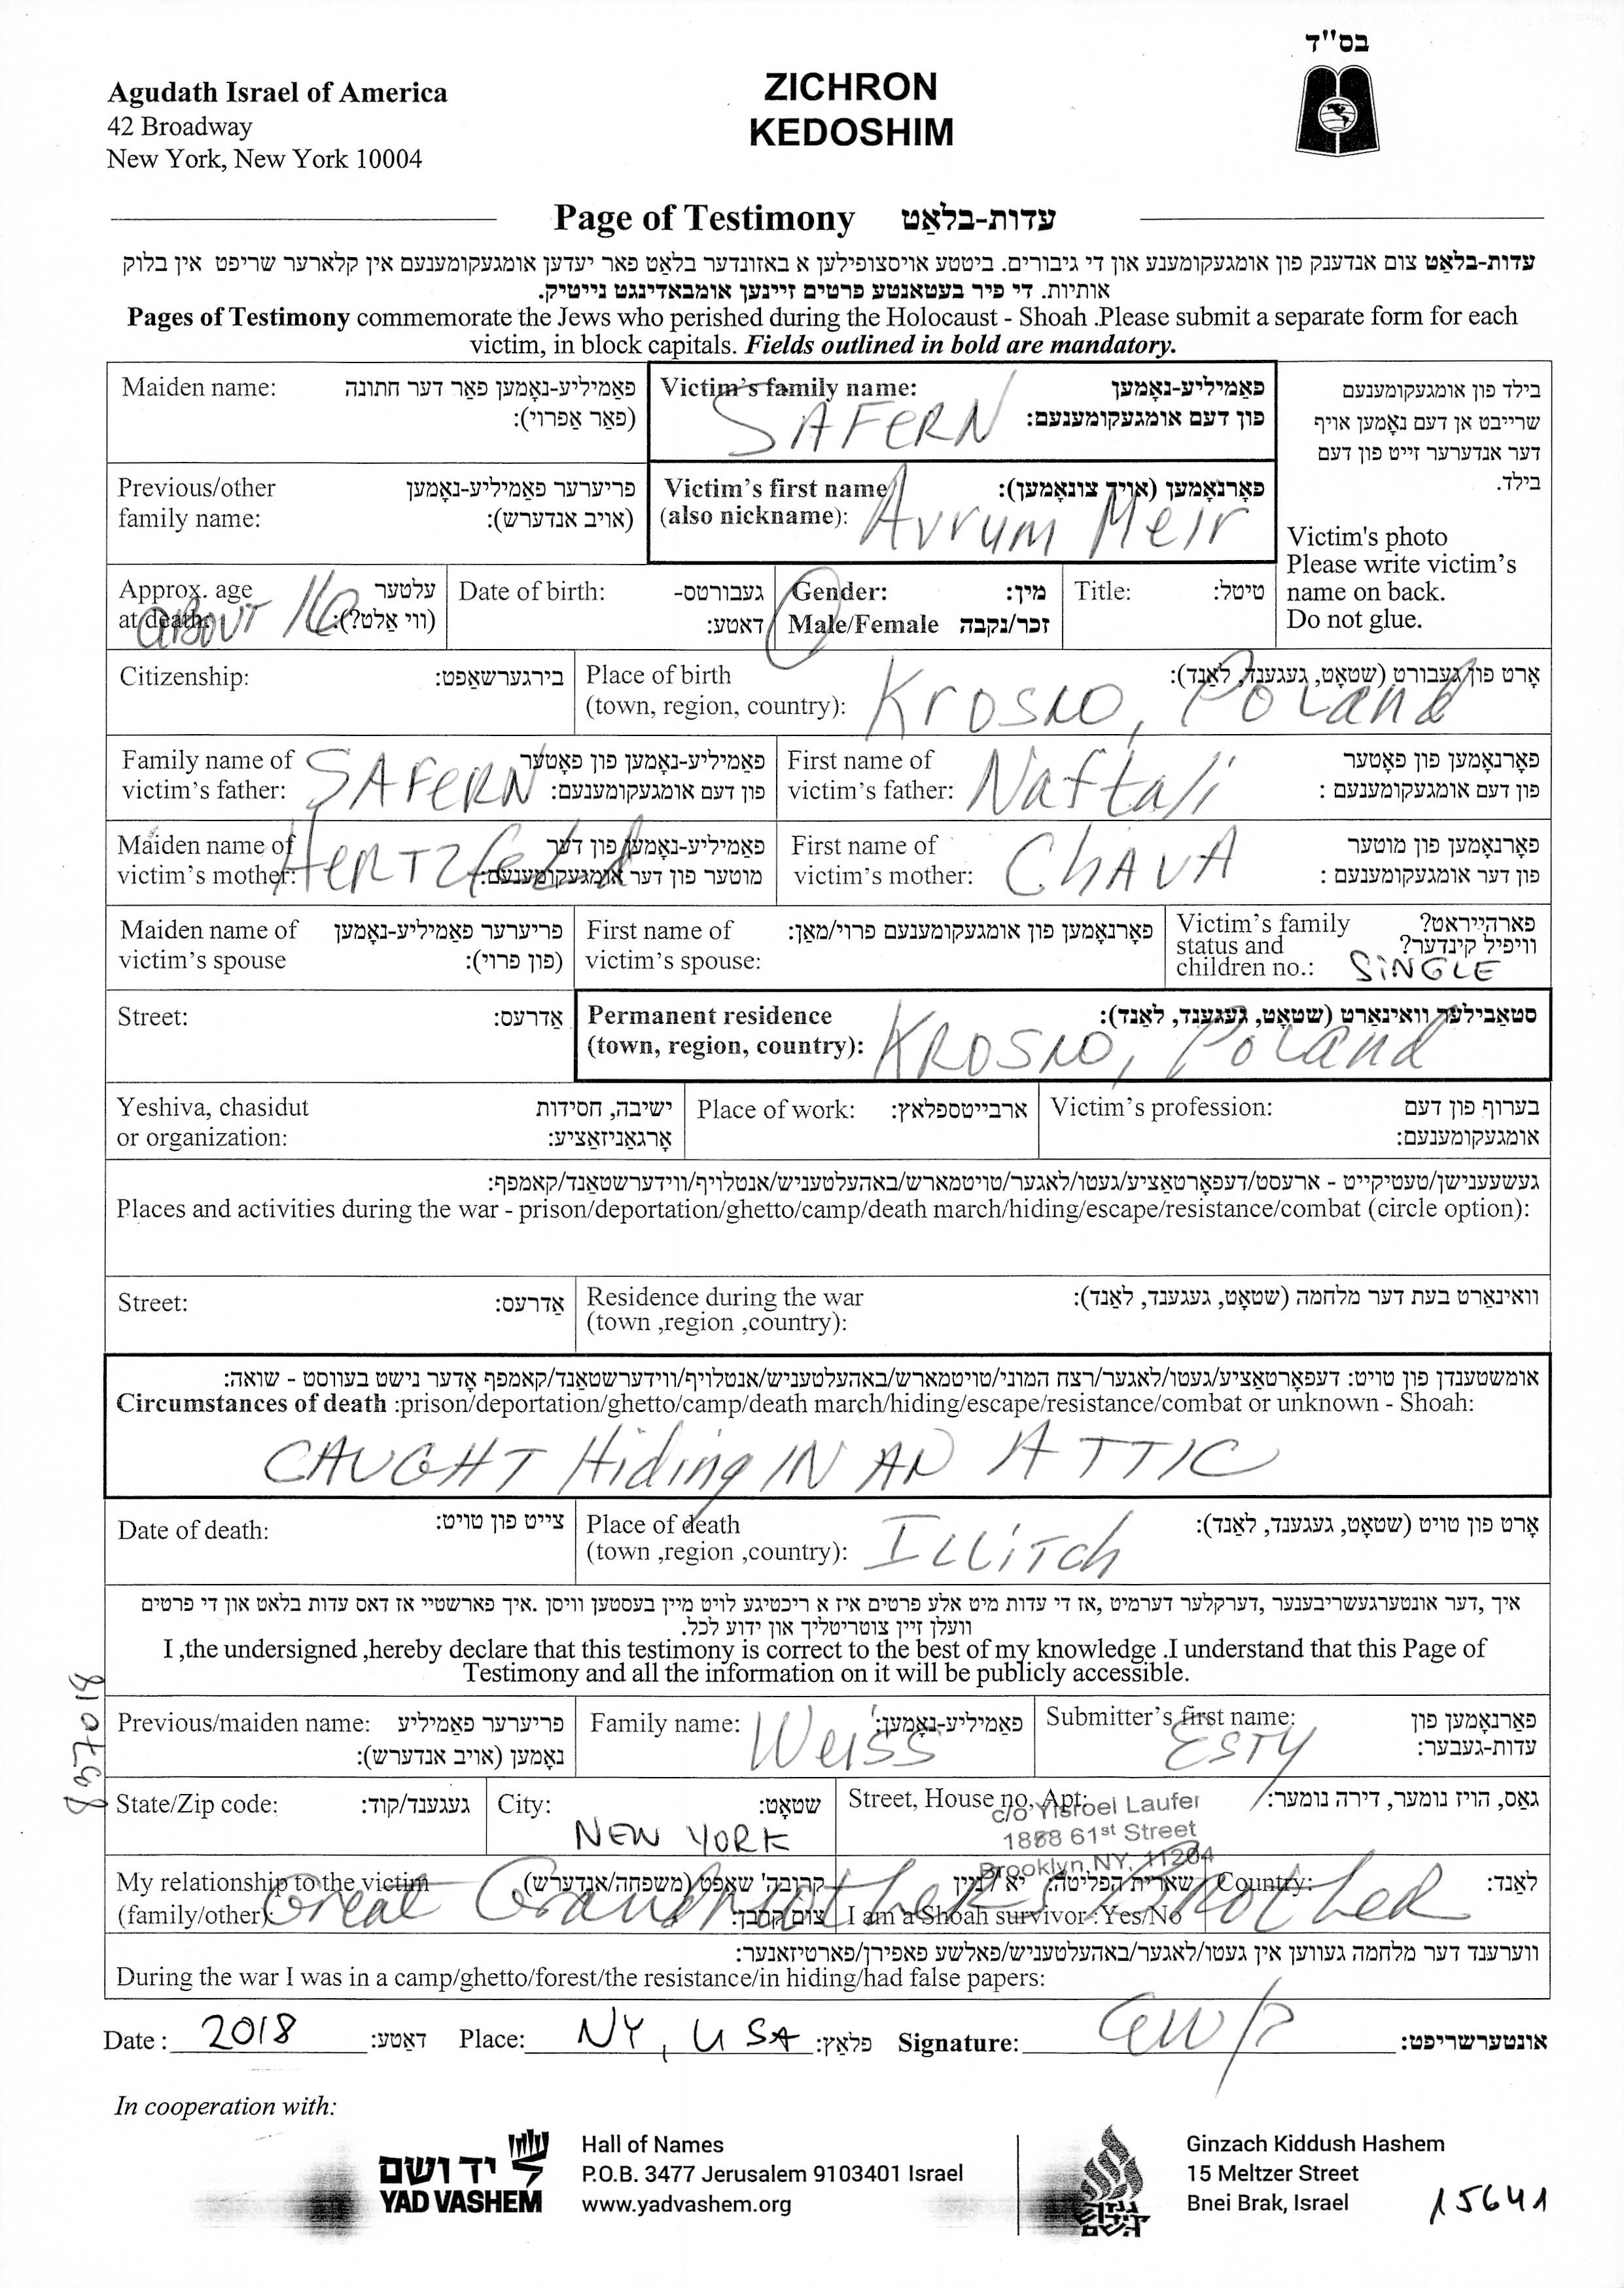 בס"ד
Agudath Israel of America
42 Broadway
New York, New York 10004
ZICHRON
KEDOSHIM
Page of Testimony עדות-בלאַט
עדות-בלאַט צום אנדענק פון אומגעקומענע און די גיבורים. ביטטע אויסצופילען א באזונדער בלאַט פאר יעדען אומגעקומענעם אין קלארער שריפט אין בלוק
אותיות. די פיר בעטאנטע פרטים זיינען אומבאדינגט נייטיק.
Pages of Testimony commemorate the Jews who perished during the Holocaust - Shoah .Please submit a separate form for each
victim, in block capitals. Fields outlined in bold are mandatory.
Maiden name: פאַמיליע-נאָמען פאַר דער חתונה
(פאַר אַפרוי):
Victim's family name: פאַמיליע-נאָמען
פון דעם אומגעקומענעם:
SAFERN
בילד פון אומגעקומענעם
שרייבט אן דעם נאָמען אויף
דער אנדערער זייט פון דעם
בילד.
Victim's photo
Please write victim's
name on back.
Do not glue.
Previous/other פריערער פאַמיליע-נאָמען
family name: (אויב אנדערש):
Victim's first name פאָרנאָמען (אויך צונאָמען):
(also nickname): Avrum Meir
Approx. age עלטער
at death: (ווי אַלט?):
ABOUT 16
Date of birth: געבורטס-
דאַטע:
Gender: מין:
Male/Female זכר/נקבה
Title: טיטל:
Citizenship: בירגערשאַפט:
Place of birth אָרט פון געבורט (שטאָט, געגענד, לאַנד):
(town, region, country): Krosno, Poland
Family name of פאַמיליע-נאָמען פון פאָטער
victim's father: פון דעם אומגעקומענעם:
SAFERN
First name of פאָרנאָמען פון פאָטער
victim's father: פון דעם אומגעקומענעם :
Naftali
Maiden name of פאַמיליע-נאָמען פון דער
victim's mother: מוטער פון דער אומגעקומענעם:
HERTZfeld
First name of פאָרנאָמען פון מוטער
victim's mother: פון דער אומגעקומענעם :
CHAVA
Maiden name of פריערער פאַמיליע-נאָמען
victim's spouse (פון פרוי):
First name of פאָרנאָמען פון אומגעקומענעם פרוי/מאַן:
victim's spouse:
Victim's family פארהייראט?
status and וויפיל קינדער?
children no.: SINGLE
Street: אַדרעס:
Permanent residence סטאַבילער וואוינארט (שטאָט, געגענד, לאַנד):
(town, region, country): KROSNO, Poland
Yeshiva, chasidut ישיבה, חסידות
or organization: אָרגאַניזאַציע:
Place of work: ארבייטספלאץ:
Victim's profession: בערוף פון דעם
אומגעקומענעם:
געשעענישן/טעטיקייט - ארעסט/דעפאָרטאַציע/געטו/לאגער/טויטמארש/באהעלטעניש/אנטלויף/ווידערשטאַנד/קאמפף:
Places and activities during the war - prison/deportation/ghetto/camp/death march/hiding/escape/resistance/combat (circle option):
Street: אַדרעס:
Residence during the war וואוינארט בעת דער מלחמה (שטאָט, געגענד, לאַנד):
(town ,region ,country):
אומשטענדן פון טויט: דעפאָרטאַציע/געטו/לאגער/רצח המוני/טויטמארש/באהעלטעניש/אנטלויף/ווידערשטאַנד/קאמפף אָדער נישט בעווסט - שואה:
Circumstances of death :prison/deportation/ghetto/camp/death march/hiding/escape/resistance/combat or unknown - Shoah:
CAUGHT Hiding IN AN ATTIC
Date of death: צייט פון טויט:
Place of death אָרט פון טויט (שטאָט, געגענד, לאַנד):
(town ,region ,country): ILLITch
איך ,דער אונטערגעשריבענער ,דערקלער דערמיט ,אז די עדות מיט אלע פרטים איז א ריכטיגע לויט מיין בעסטען וויסן .איך פארשטיי אז דאס עדות בלאט און די פרטים
וועלן זיין צוטריטליך און ידוע לכל.
I ,the undersigned ,hereby declare that this testimony is correct to the best of my knowledge .I understand that this Page of
Testimony and all the information on it will be publicly accessible.
857018
Previous/maiden name: פריערער פאַמיליע
נאָמען (אויב אנדערש):
Family name: פאַמיליע-נאָמען:
Weiss
Submitter's first name: פאַרנאָמען פון
עדות-געבער:
ESTY
State/Zip code: געגענד/קוד:
City: שטאָט:
NEW YORK
Street, House no, Apt: גאַס, הויז נומער, דירה נומער:
c/o Yisroel Laufer
1858 61st Street
Brooklyn, NY, 11204
My relationship to the victim קרובה' שאפט (משפחה/אנדערש)
(family/other): צום קרבן:
Great Grandmother's Brother
שארית הפליטה: יא / ניין
I am a Shoah survivor :Yes/No
Country: לאַנד:
ווערענד דער מלחמה געווען אין געטו/לאגער/באהעלטעניש/פאלשע פאפירן/פארטיזאנער:
During the war I was in a camp/ghetto/forest/the resistance/in hiding/had false papers:
Date : 2018 דאַטע: Place: NY, USA פלאַץ: Signature: אונטערשריפט:
In cooperation with:
יד ושם
YAD VASHEM
Hall of Names
P.O.B. 3477 Jerusalem 9103401 Israel
www.yadvashem.org
גנזך
קידוש
השם
Ginzach Kiddush Hashem
15 Meltzer Street
Bnei Brak, Israel
15641